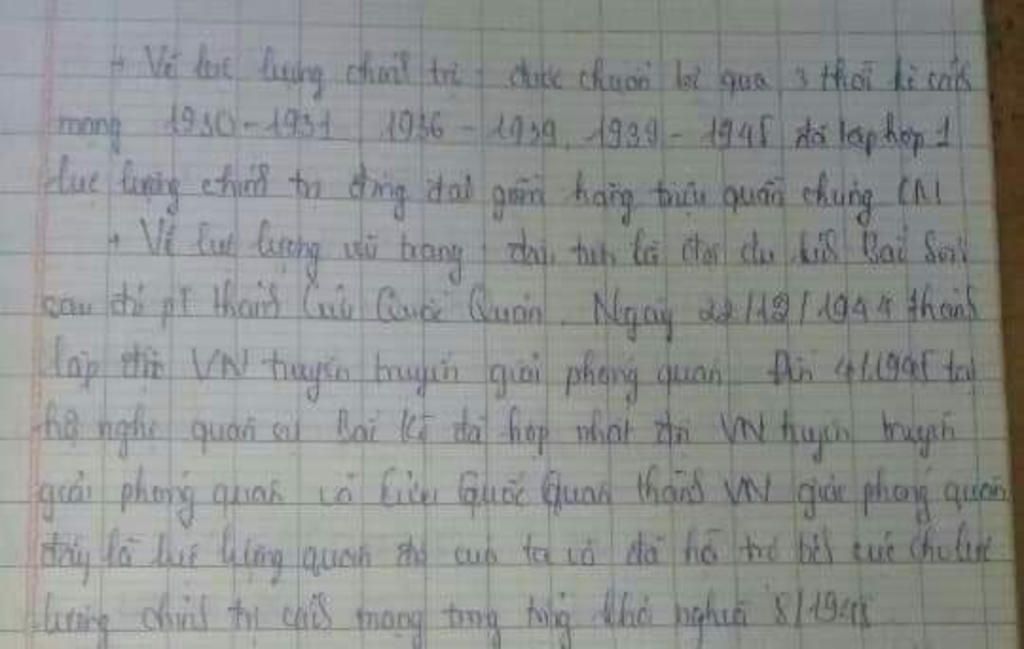 + Về lực lượng chính trị: được chuẩn bị qua 3 thời kì cách
mạng 1930-1931, 1936-1939, 1939-1945 đã tập hợp 1
lực lượng chính trị đông đảo gồm hàng triệu quần chúng
+ Về lực lượng vũ trang: đầu tiên là đội du kích Bắc Sơn
sau đó pt thành Cứu Quốc Quân. Ngày 22/12/1944 thành
lập đội VN tuyên truyền giải phóng quân. Đến 4/1945 tại
hội nghị quân sự Bắc Kì đã hợp nhất đội VN tuyên truyền
giải phóng quân và Cứu Quốc Quân thành VN giải phóng quân
đây là lực lượng quan đội của ta và đã hỗ trợ tích cực cho lực
lượng chính trị cách mạng trong tổng khởi nghĩa 8/1945